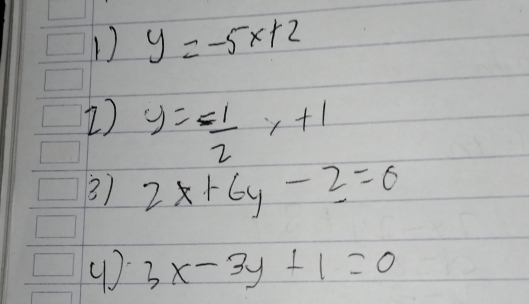 1) y = -5x+2
2) y = -1/2 x +1
3) 2x+6y - 2 = 0
4) 3x - 3y + 1 = 0